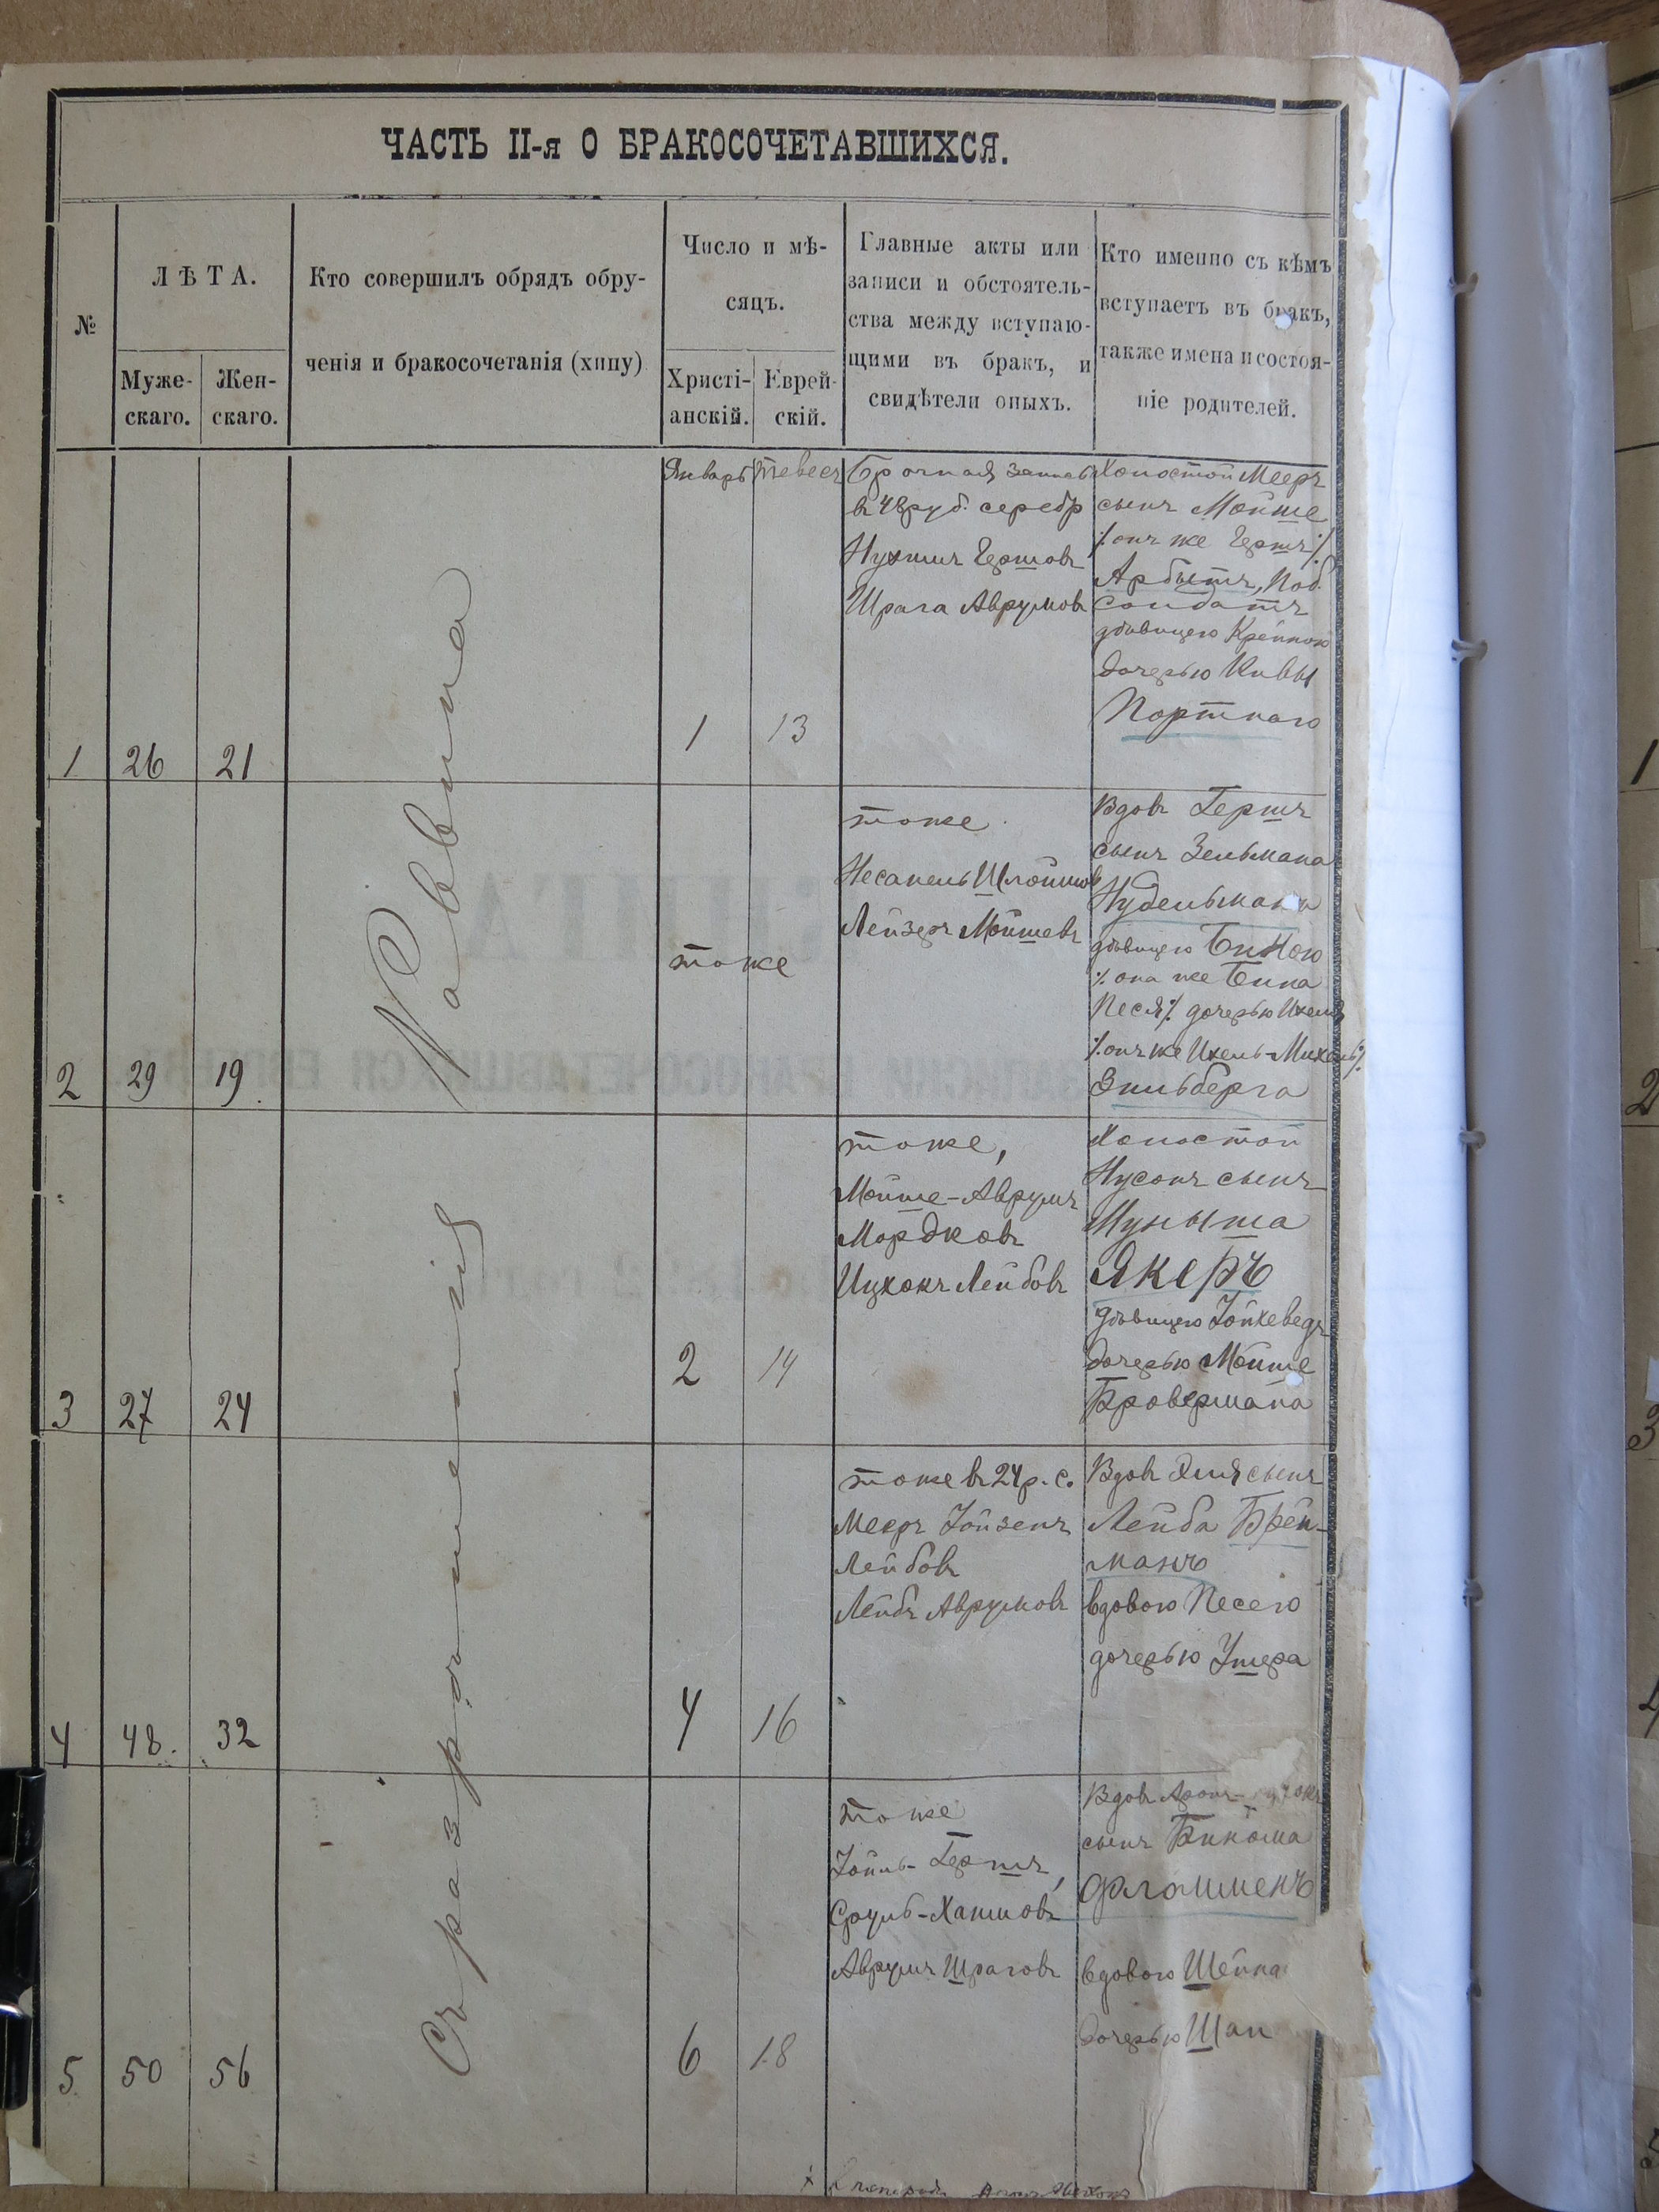 ЧАСТЬ II-я О БРАКОСОЧЕТАВШИХСЯ.
№
ЛѢТА.
Муже-
скаго.
Жен-
скаго.
Кто совершилъ обрядъ обру-
ченія и бракосочетанія (хипу)
Число и мѣ-
сяцъ.
Христі-
анскій.
Еврей-
скій.
Главные акты или
записи и обстоятель-
ства между вступаю-
щими въ бракъ, и
свидѣтели оныхъ.
Кто именно съ кѣмъ
вступаетъ въ бракъ,
также имена и состоя-
ніе родителей.
Съ разрѣшенія
Раввина
1
26
21
Январь
1
Тевесъ
13
Брачная запись
въ 48 руб. серебр
Нухимъ Гершовъ
Шрага Аврумовъ
Холостой Мееръ
сынъ Мойше
/. онъ же Гершъ /.
Арбытъ,
солдатъ
дѣвицею Крейною
дочерью Кивы
Портнаго
2
29
19
тоже
тоже
Несанель Шлоимов
Лейзеръ Мойшевъ
Вдовъ Гершъ
сынъ Зельмана
Нудельмана
дѣвицею Биною
/. она же Бина
Песя /. дочерью Ихеля
/. онъ же Ихель-Михель /.
Зильберга
3
27
24
2
14
тоже,
Мойше-Аврумъ
Мордковъ
Ицхокъ Лейбовъ
Холостой
Нусонъ сынъ
Муныша
Якеръ
дѣвицею Іойхеведъ
дочерью Мойше
Бровермана
4
48.
32
4
16
тоже въ 24 р. с.
Мееръ Іойзепъ
Лейбовъ
Лейбъ Аврумовъ
Вдовъ Эля сынъ
Лейба Брей-
манъ
вдовою Песею
дочерью Ушера
5
50
56
6
18
тоже
Іойль-Гершъ,
Сруль-Хаимовъ
Аврумъ Шраговъ
Вдовъ Аронъ-
сынъ Бинома
Флашменъ
вдовою Шейна
дочерью